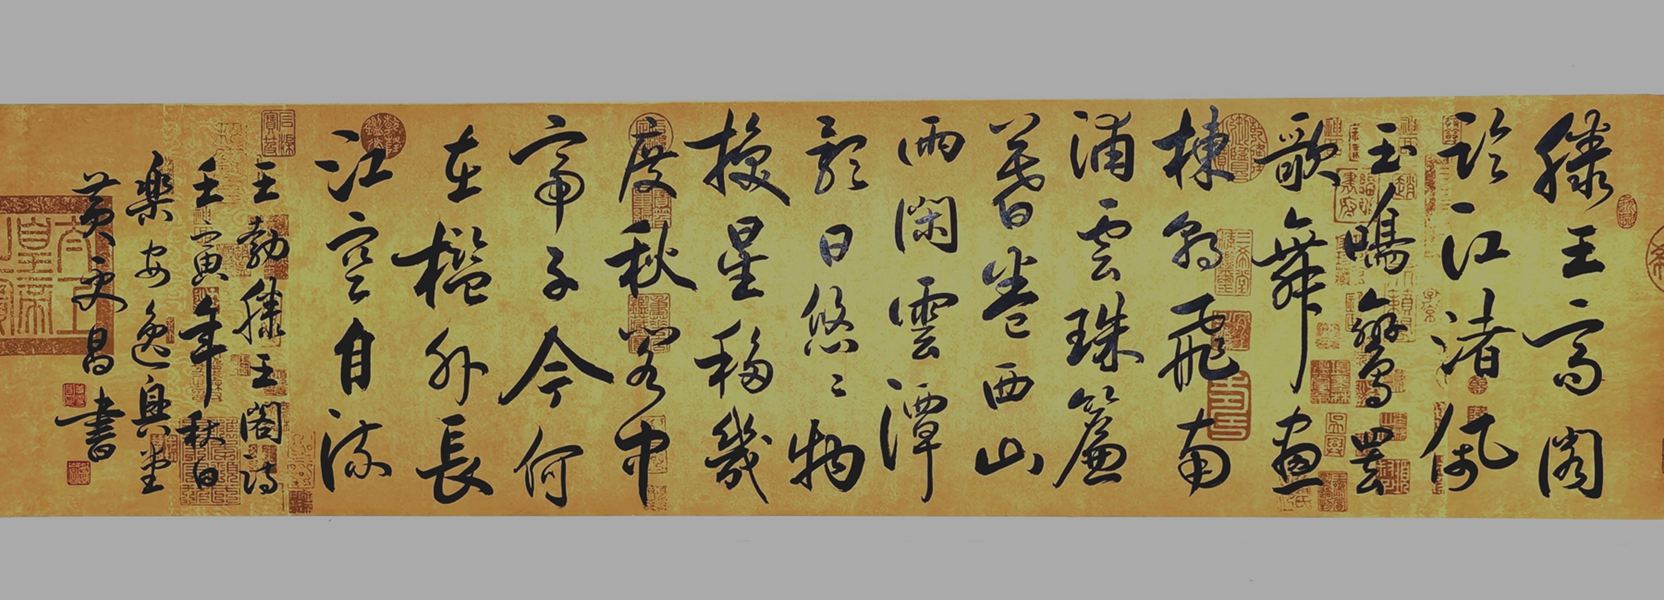 滕王高閣
臨江渚佩
玉鳴鸞罷
歌舞畫
棟朝飛南
浦云珠簾
暮卷西山
雨閑雲潭
影日悠々物
換星移幾
度秋閣中
帝子今何
在檻外長
江空自流
王勃滕王閣詩
壬寅年秋日
樂安逸興堂
黃昌書